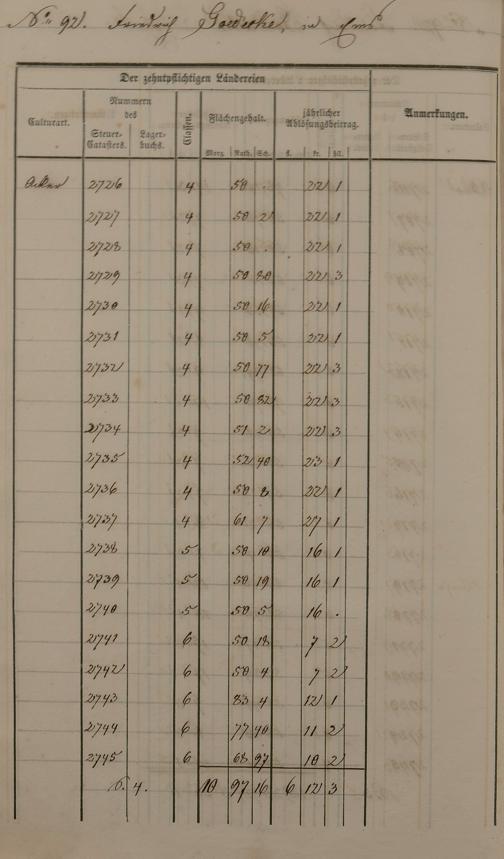 No. 92. Friedrich Goedecke, in Ems
Der zehntpflichtigen Ländereien
Culturart.
Nummern des
Steuer-Catasters.
Lager-buchs.
Classen.
Flächengehalt.
Morg. Ruth. Sch.
jährlicher Ablösungsbeitrag.
fl. kr. hll.
Anmerkungen.
Acker 2726 4 50 . 22 1
2727 4 50 2 22 1
2728 4 50 . 22 1
2729 4 50 80 22 3
2730 4 50 16 22 1
2731 4 50 5 22 1
2732 4 50 77 22 3
2733 4 50 82 22 3
2734 4 51 2 22 3
2735 4 52 40 23 1
2736 4 50 8 22 1
2737 4 61 7 27 1
2738 5 50 10 16 1
2739 5 50 19 16 1
2740 5 50 5 16 .
2741 6 50 18 7 2
2742 6 50 4 7 2
2743 6 83 4 12 1
2744 6 77 40 11 2
2745 6 68 97 10 2
S. 4. 10 97 16 6 12 3